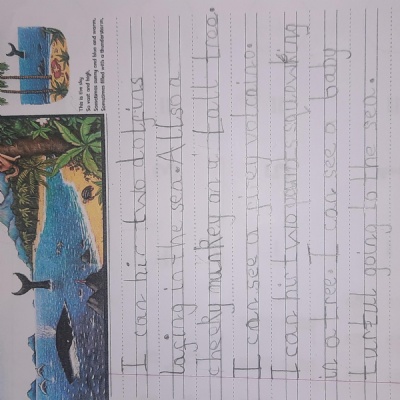 This is the sky
So vast and high,
Sometimes sunny and blue and warm,
Sometimes filled with a thunderstorm.
I can hir two dolfins
laging in the sea. Allson
cheeky munkey on a taull tree.
I can see a firey volcnio.
I can hir two squawking
in a tree. I can see a baby
turtull going to the sea.